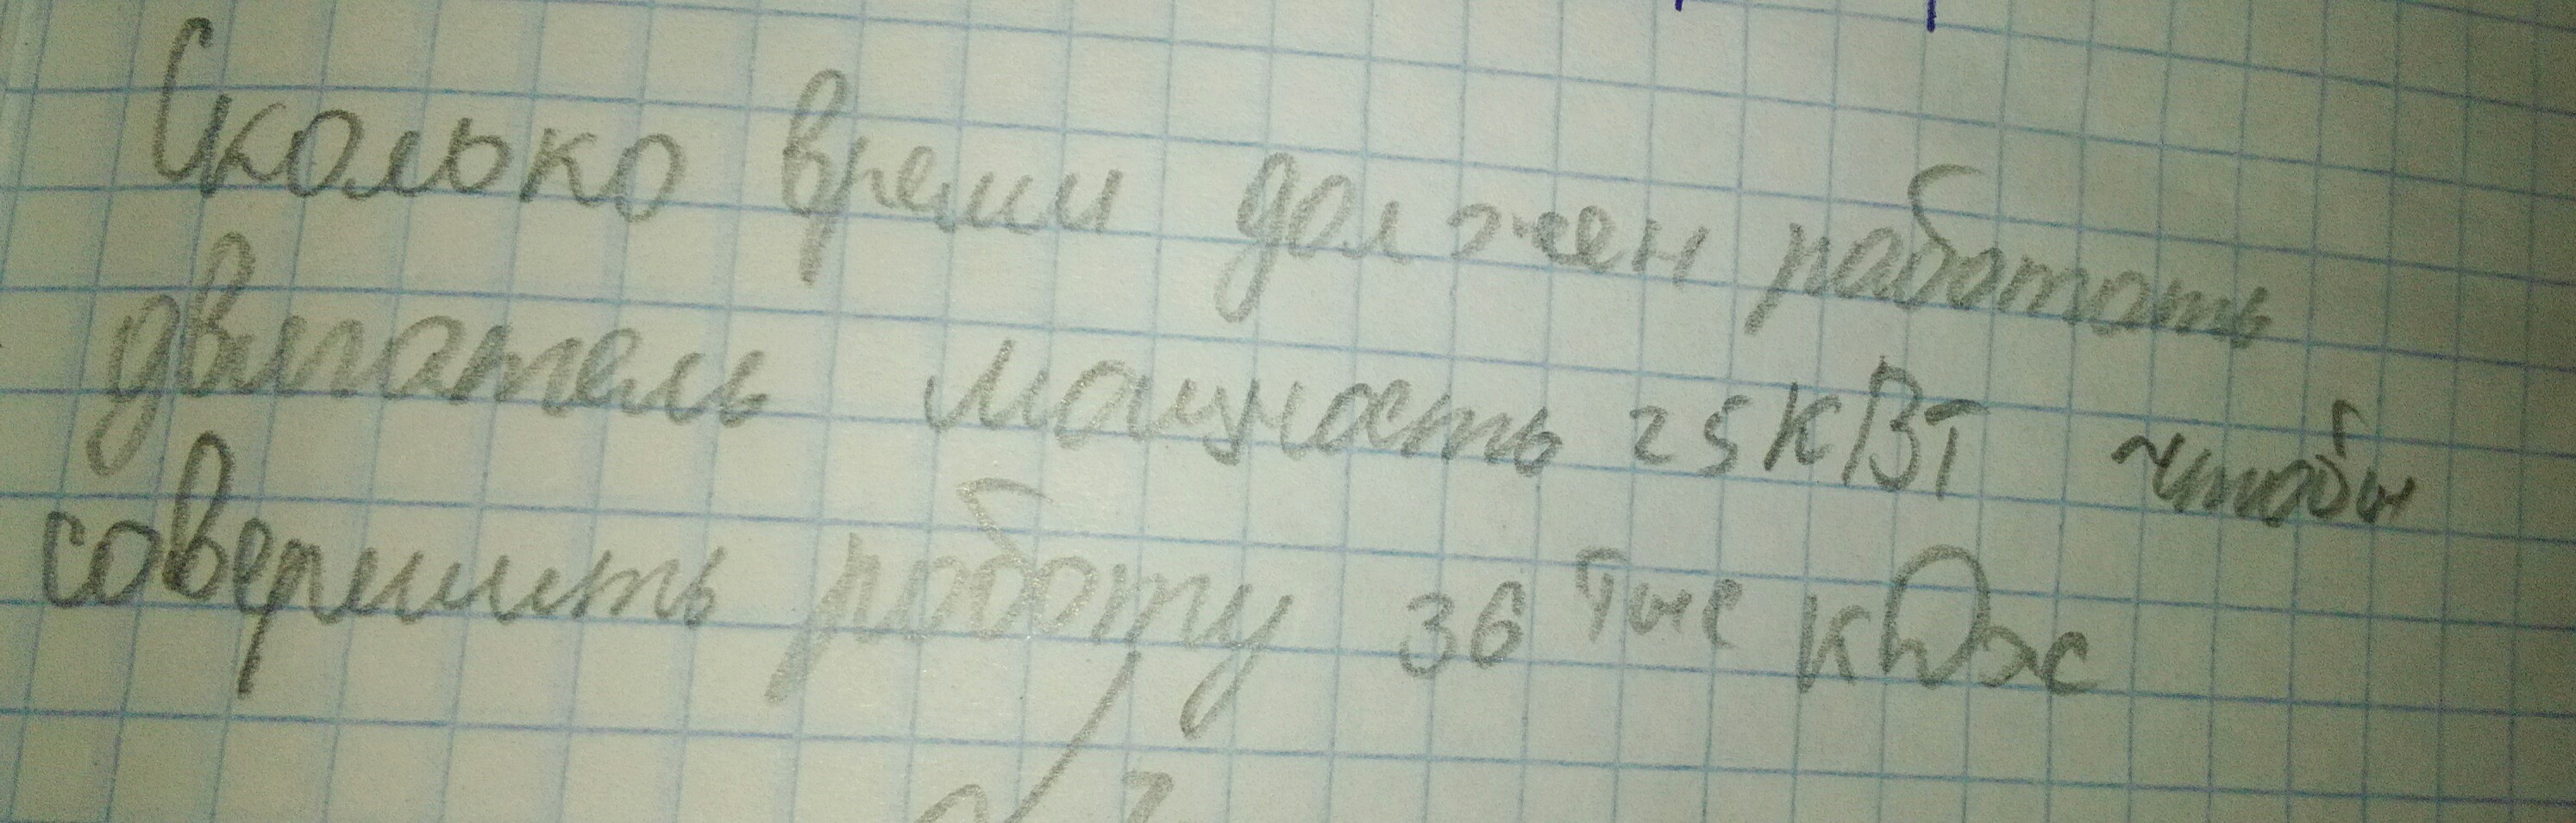 Сколько времи должен работать
двигатель мощность 25 кВт чтобы
совершить работу 36 тыс кДж